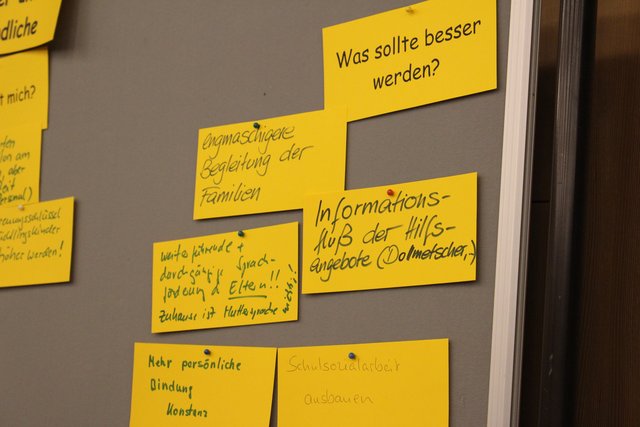 dliche
t mich?
Was sollte besser
werden?
engmaschigere
Begleitung der
Familien
Informations-
fluß der Hilfs-
angebote (Dolmetscher,-)
weiterführende +
durchgängige Sprach-
förderung d. Eltern!!
Zuhause ist Muttersprache
ten
aber
eit
ersonal)
uungsschlüssel
üchtlingskinder
höher werden!
Mehr persönliche
Bindung
Konstanz
Schulsozialarbeit
ausbauen